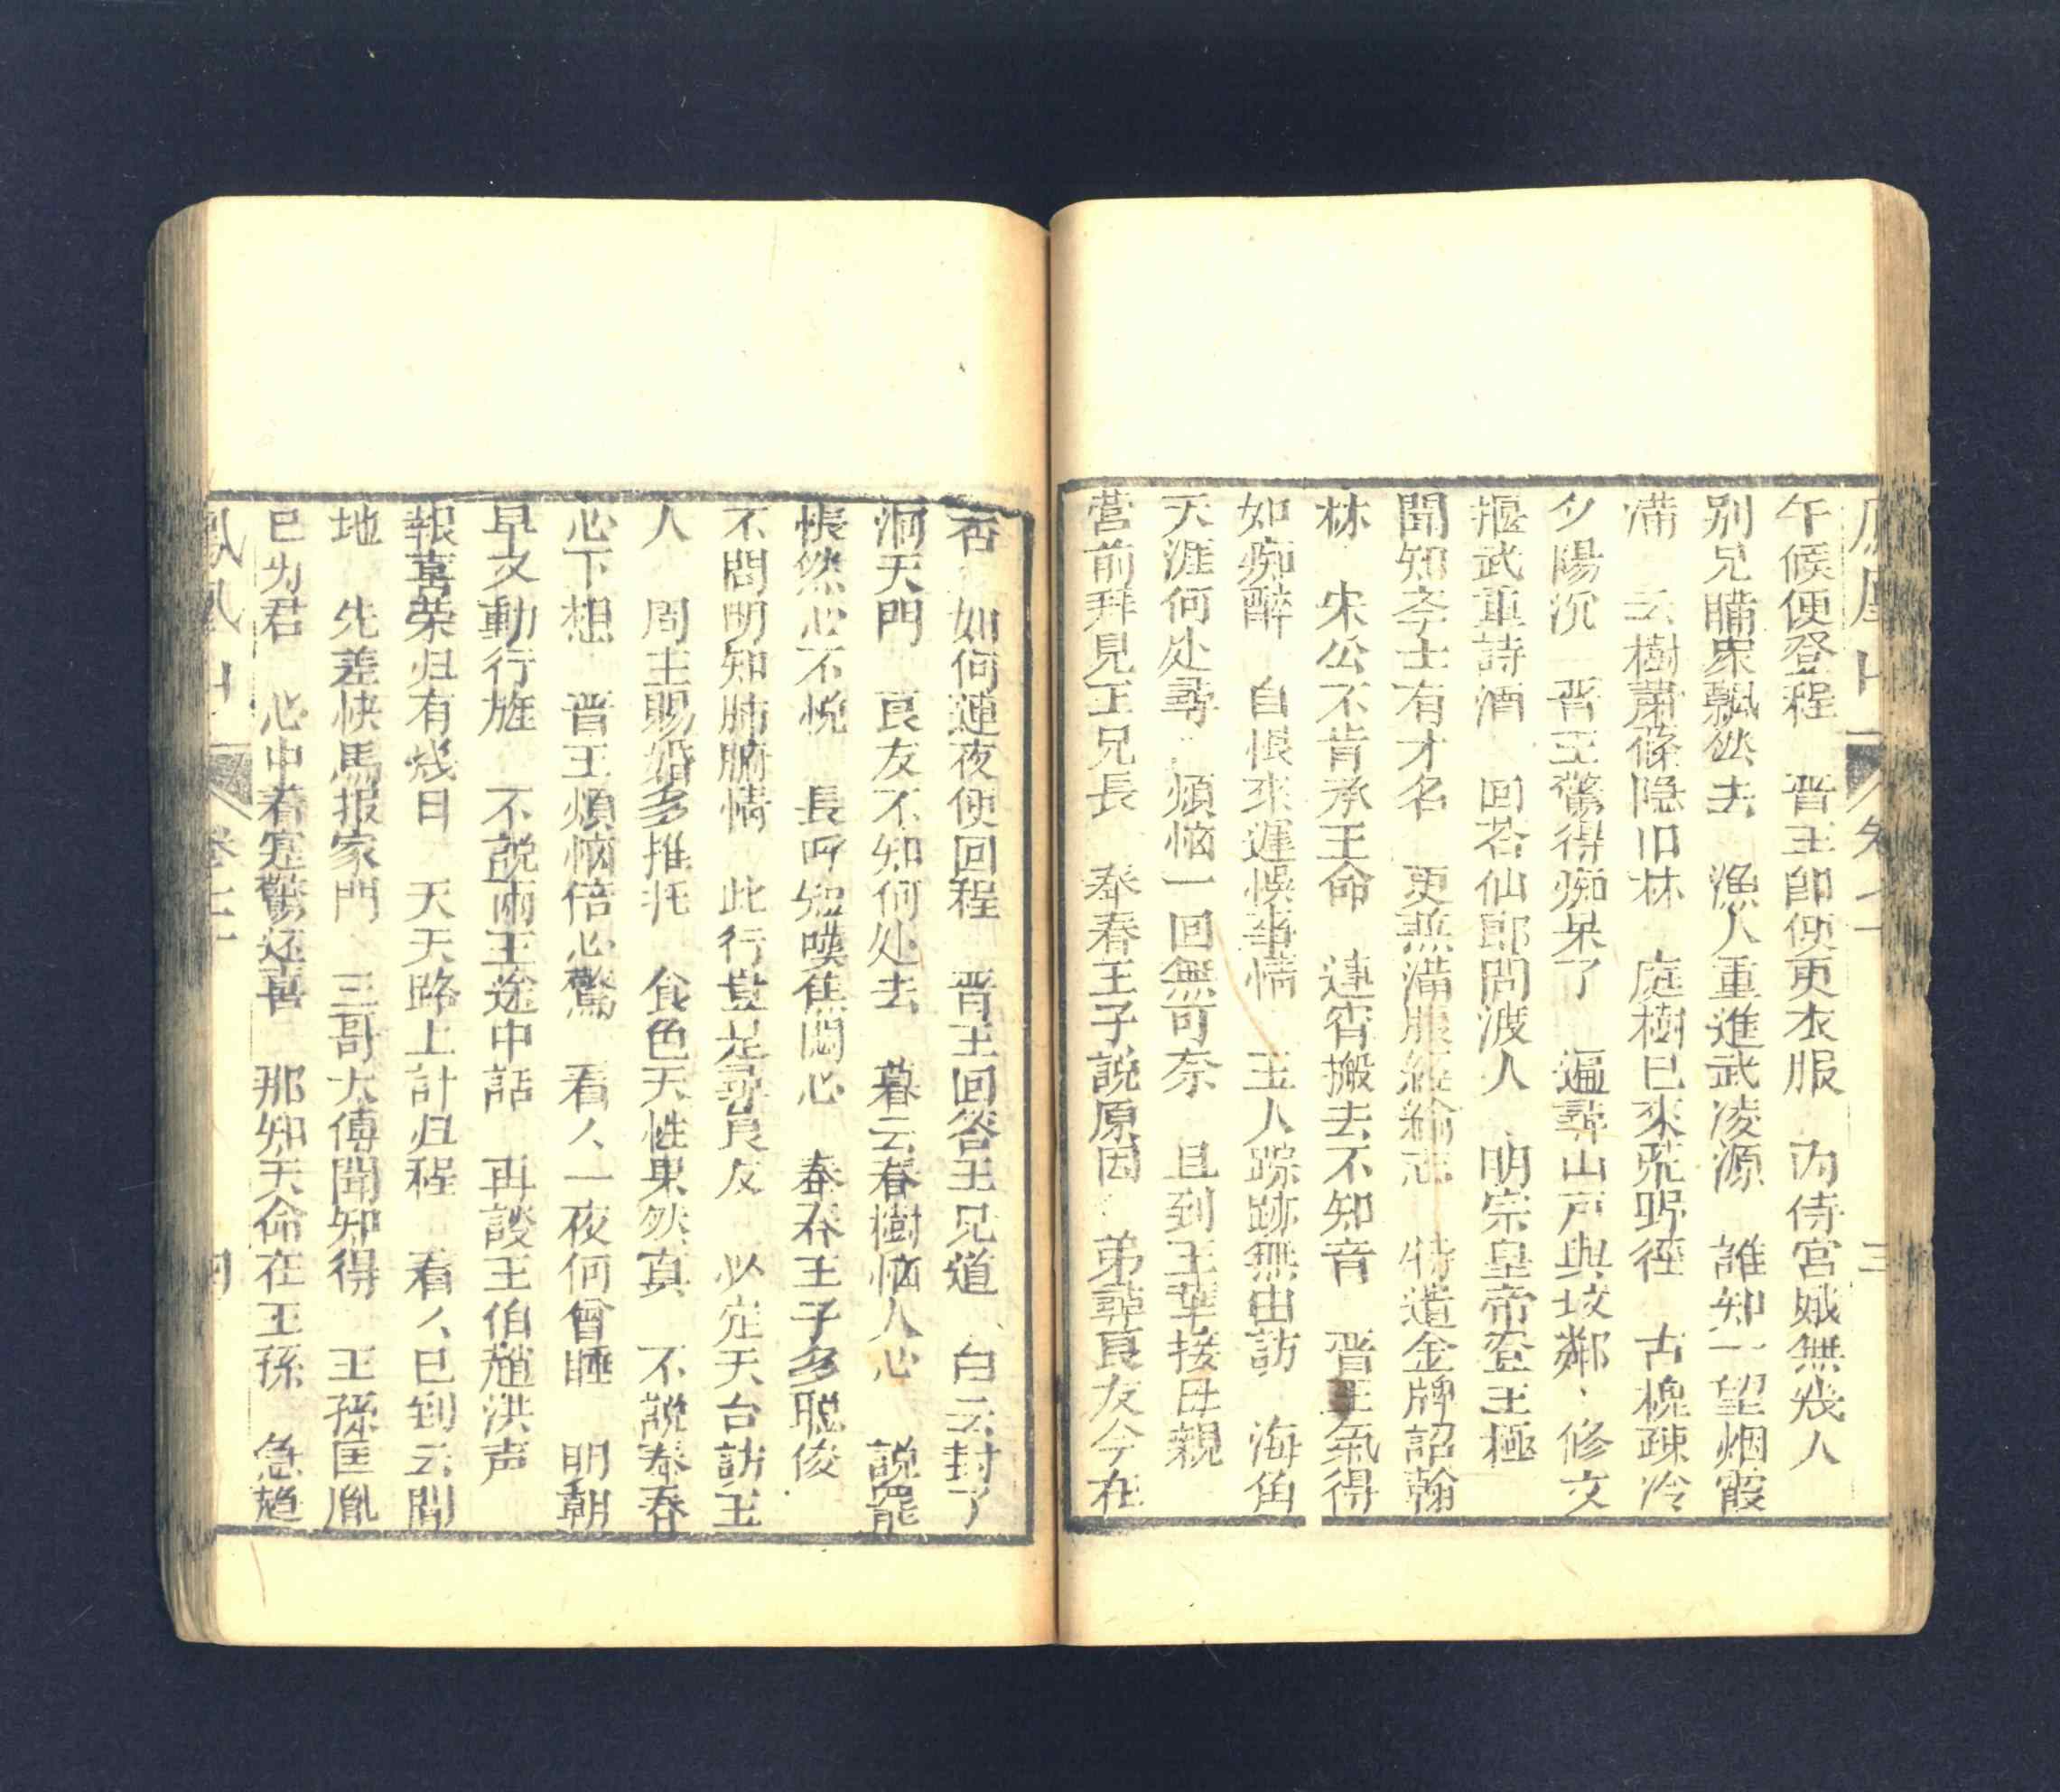 午候便登程　晋王即便更衣服　内侍宮娥無幾人
別兄購眾飄然去　漁人重進武凌源　誰知一望烟霞
滿　云樹蕭條隐旧林　庭樹已來荒野徑　古槐疎冷
夕陽沉　晋王驚得痴呆了　遍尋山戸與坟鄰　修文
揠武重詩酒　回荅仙郎問渡人　明宗皇帝登王極
聞知孝士有才名　更無滿腹經綸志　特遣金牌詔翰
林　宋公不肯承王命　連宵搬去不知音　晋王氣得
如痴醉　自恨來遲悞事情　玉人踪跡無由訪　海角
天涯何处尋　煩惱一回無可奈　且到王華接母親
营前拜見王兄長　奉春王子説原因　弟尋良友今在
否　如何連夜便回程　晋王回答王兄道　白云封了
洞天門　良友不知何处去　暮云春樹惱人心　説罷
悵然心不悦　長吁短嘆蕉悶心　奉春王子多聪俊
不問明知肺腑情　此行豈是尋良友　必定天台訪玉
人　周主賜婚多推托　食色天性果然真　不説奉春
心下想　晋王煩惱倍心驚　看人一夜何曾睡　明朝
早又動行旌　不説兩王途中話　再談王伯趙洪声
報喜荣归有幾日　天天路上計归程　看人已到云間
地　先差快馬报家門　三哥大傅聞知得　王孫匡胤
已为君　心中着寔驚还喜　那知天命在王孫　急趋
鳳凰山　卷七十　四